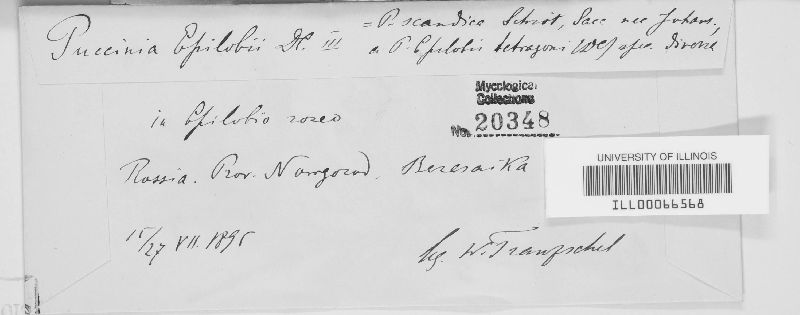 Puccinia Epilobii DC. III = P. scandica Schröt, Sacc nec Johans,
a P. Epilobii tetragoni (DC) spec. diversa
in Epilobio roseo
Mycological
Collections
No. 20348
UNIVERSITY OF ILLINOIS
ILL00066568
Rossia. Prov. Nowgorod, Beresaika
15/27 VII. 1895
lg. W. Tranzschel